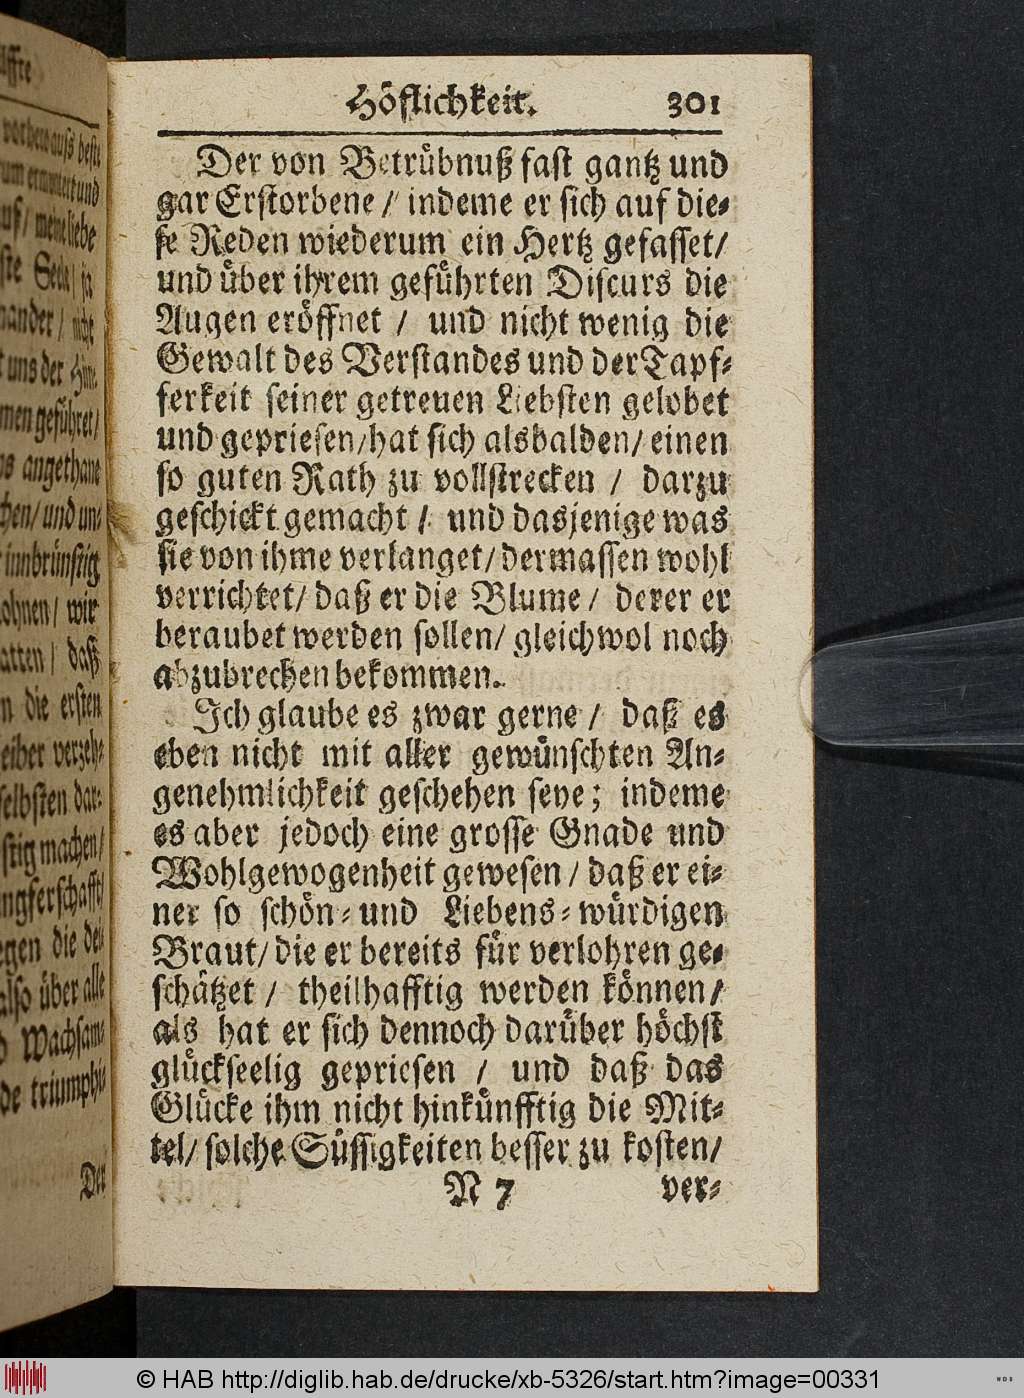 Höflichkeit. 301
Der von Betrübnuß fast gantz und
gar Erstorbene / indeme er sich auf die-
se Reden wiederum ein Hertz gefasset /
und über ihrem geführten Discurs die
Augen eröffnet / und nicht wenig die
Gewalt des Verstandes und der Tapf-
ferkeit seiner getreuen Liebsten gelobet
und gepriesen / hat sich alsbalden / einen
so guten Rath zu vollstrecken / darzu
geschickt gemacht / und dasjenige was
sie von ihme verlanget / dermassen wohl
verrichtet / daß er die Blume / derer er
beraubet werden sollen / gleichwol noch
abzubrechen bekommen.
Ich glaube es zwar gerne / daß es
eben nicht mit aller gewünschten An-
genehmlichkeit geschehen seye; indeme
es aber jedoch eine grosse Gnade und
Wohlgewogenheit gewesen / daß er ei-
ner so schön- und Liebens-würdigen
Braut / die er bereits für verlohren ge-
schätzet / theilhafftig werden können /
als hat er sich dennoch darüber höchst
glückseelig gepriesen / und daß das
Glücke ihm nicht hinkünfftig die Mit-
tel / solche Süssigkeiten besser zu kosten /
N 7 ver-
vorheraus
und
/ meine liebe
ste Seele / ja
nander /
uns der
men geführet /
angethane
/ und un-
innbrünstig
ohnen / wir
atten / daß
n die ersten
eiber verzeh-
selbsten dar-
stig machen /
ngferschafft /
gen die
also über alle
Wachsam-
de triumphi-
Der
© HAB http://diglib.hab.de/drucke/xb-5326/start.htm?image=00331
WDB